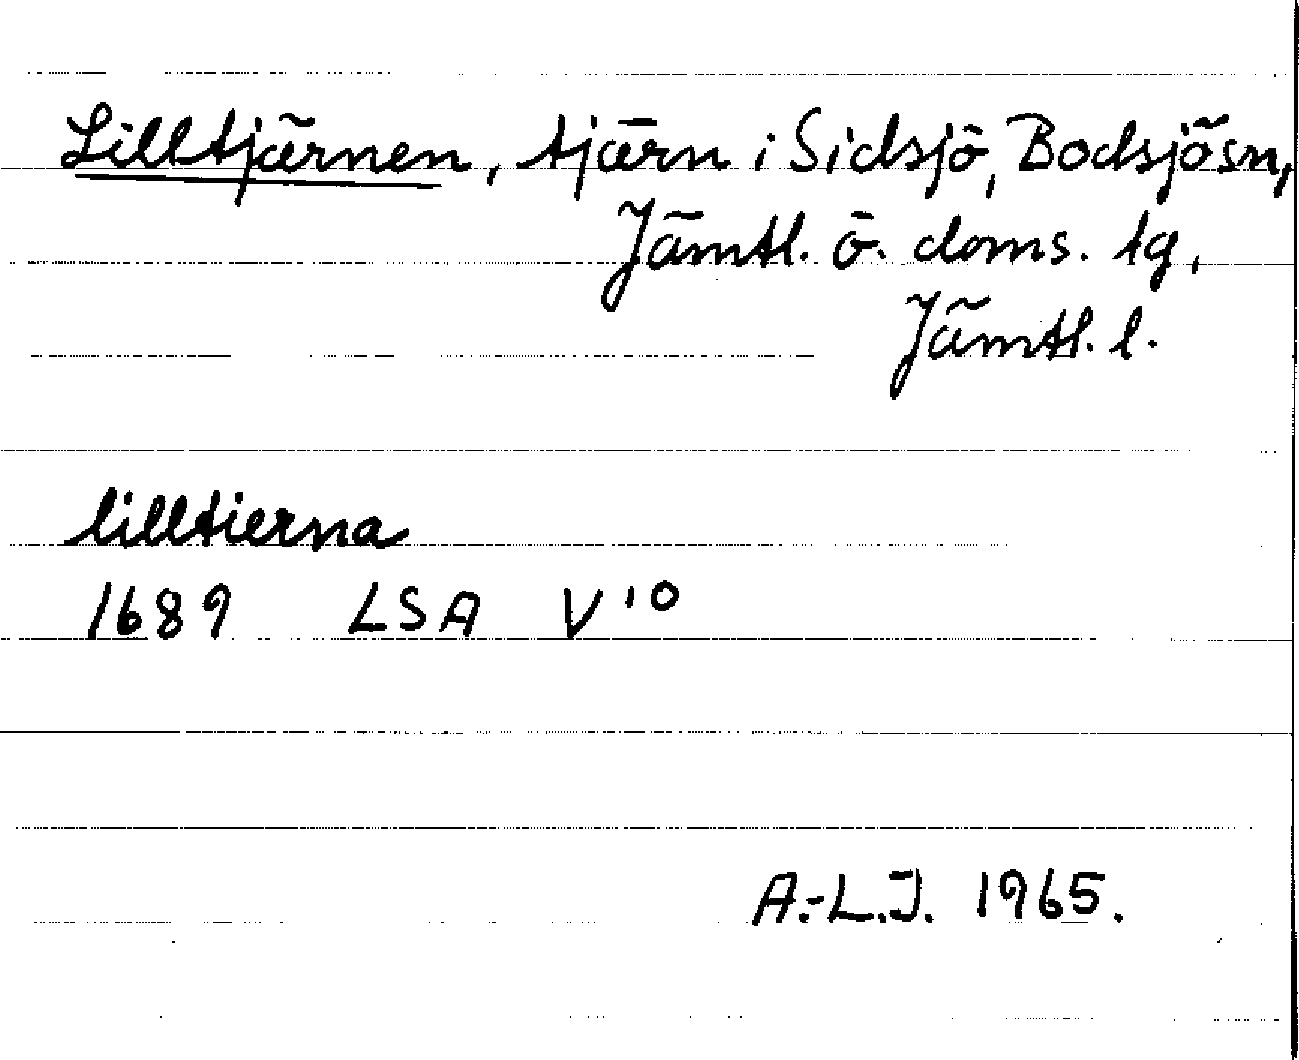 Lilltjärnen, tjärn i Sidsjö, Bodsjösn,
Jämtl. ö. doms. tg,
Jämtl. l.
lilltierna
1689 LSA V 10
A.-L.J. 1965.